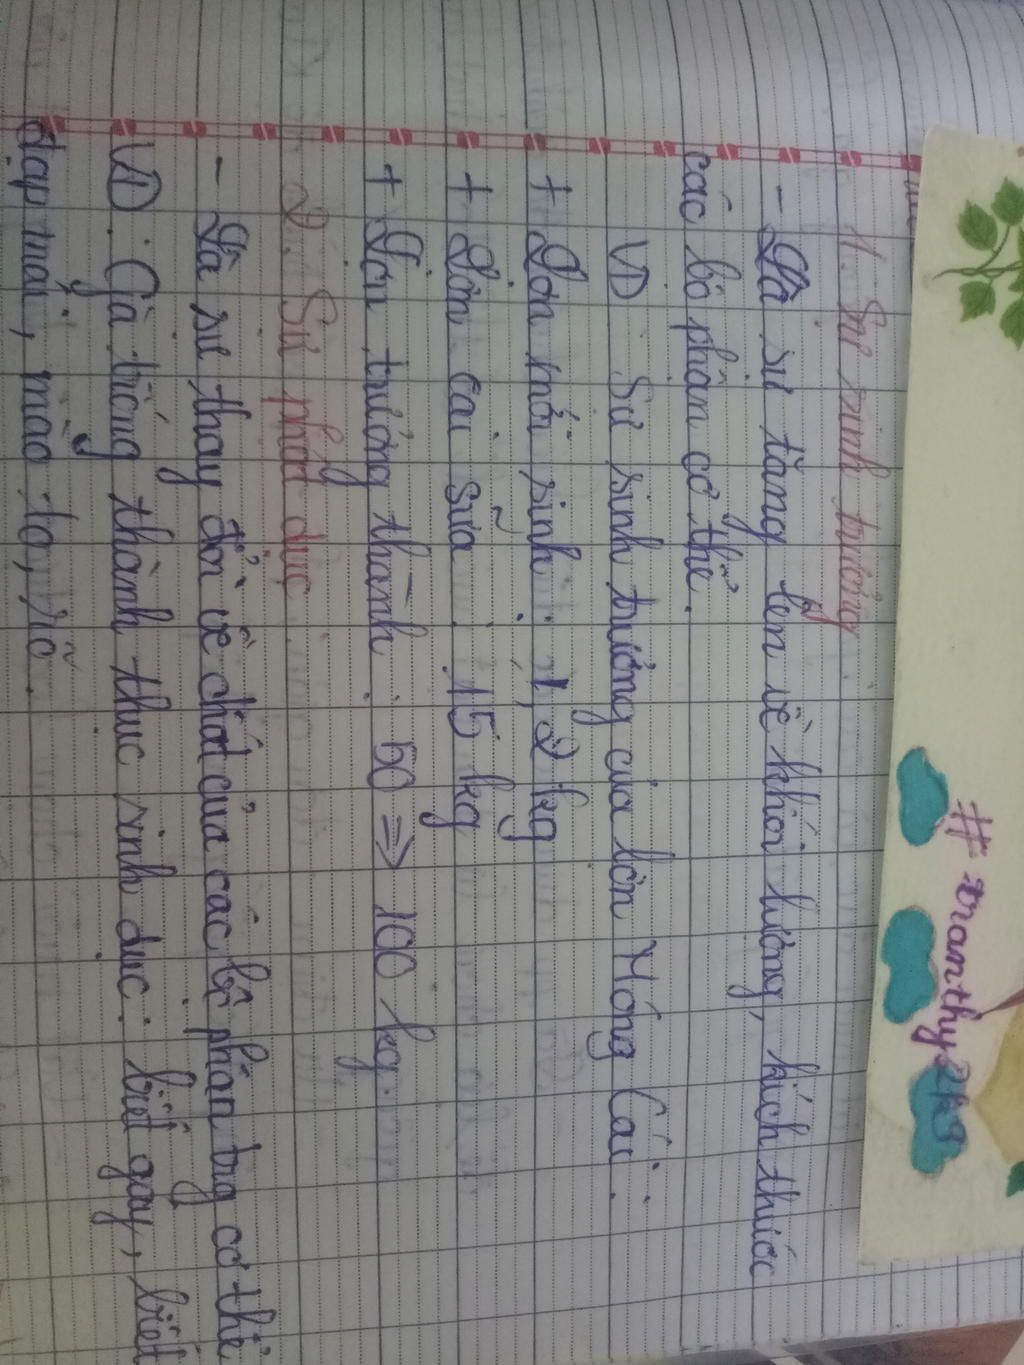 #xuanthy2k9
1. Sự sinh trưởng
- Là sự tăng lên về khối lượng, kích thước
các bộ phận cơ thể.
VD Sự sinh trưởng của lợn Móng Cái:
+ Lợn mới sinh: 1,2 kg
+ Lợn cai sữa: 15 kg
+ Lợn trưởng thành: 50 => 100 kg.
2. Sự phát dục
- Là sự thay đổi về chất của các bộ phận trg cơ thể
VD: Gà trống thành thục sinh dục: biết gáy, biết
đạp mái, mào to, rõ.